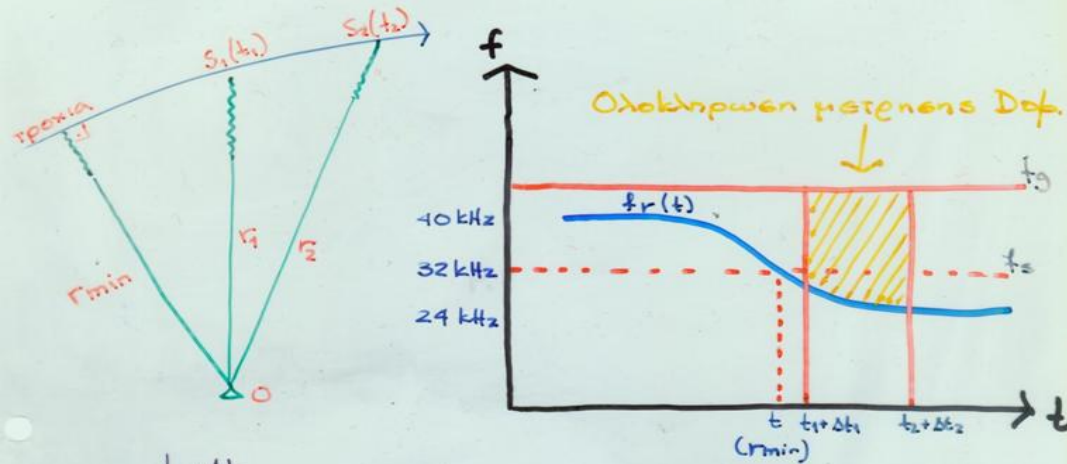 S₁(t₁)
S₂(t₂)
τροχια
r₁
r₂
rmin
O
f
Ολοκληρωση μετρησης Dop.
fg
fr(t)
40 kHz
32 kHz
fs
24 kHz
t
t
(rmin)
t₁+Δt₁
t₂+Δt₂